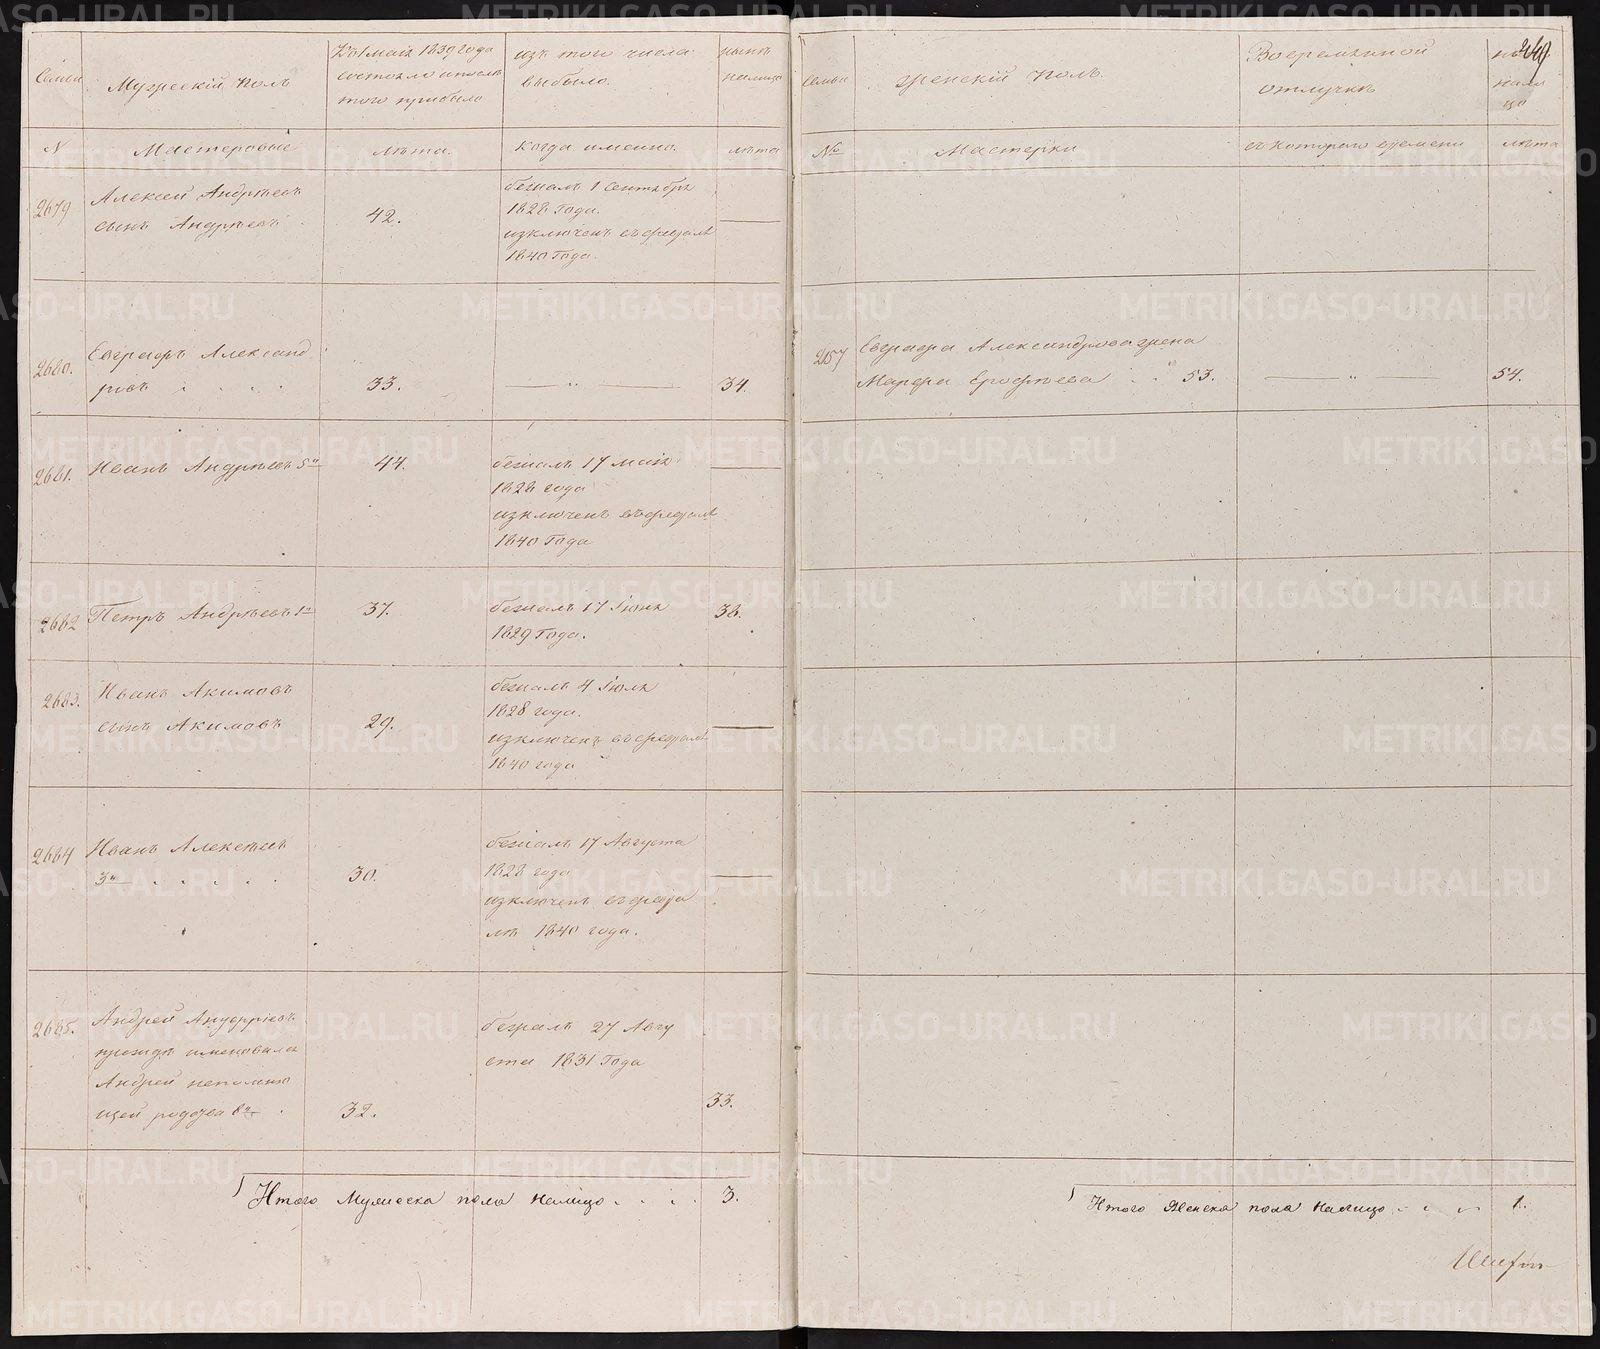 Семьи
Мужескій Полъ
Къ 1 мая 1839 года
состояло и послѣ
того прибыло
изъ того числа
выбыло.
нынѣ
налицо
N
Мастеровые
лѣта.
когда именно.
лѣта
2679
Алексей Андрѣевъ
сынъ Андрѣевъ
42.
бежалъ 1 Сентября
1828 Года.
изключенъ въ
1840 Года.
2680.
Евграфъ Александ
ровъ . . . .
33.
— " —
34.
2681.
Иванъ Андрѣевъ 5й
44.
бежалъ 17 мая
1828 года
изключенъ въ
1840 Года
2682
Петръ Андрѣевъ 1й
37.
бежалъ 17 Іюня
1829 Года.
38.
2683.
Иванъ Акимовъ
сынъ Акимовъ
29.
бежалъ 4 Іюля
1828 года.
изключенъ въ
1840 года
2684
Иванъ Алексѣевъ
3й . . . . .
30.
бежалъ 17 Августа
1828 года
изключенъ
1840 года.
2685.
Андрей
прежде именовался
Андрей непомню
щей родства 8й .
32.
бежалъ 27 Авгу
ста 1831 Года
33.
Итого Мужеска пола налицо . . . .
3.
240
Семьи
Женскій Полъ.
Во временной
отлучкѣ
нынѣ
нали
цо
№
Мастерки
съ котораго времени
лѣта
257
Евграфа Александрова жена
Марфа Ерофѣева . . 53.
— " —
54.
Итого Женска пола налицо . . .
1.
METRIKI.GASO-URAL.RU